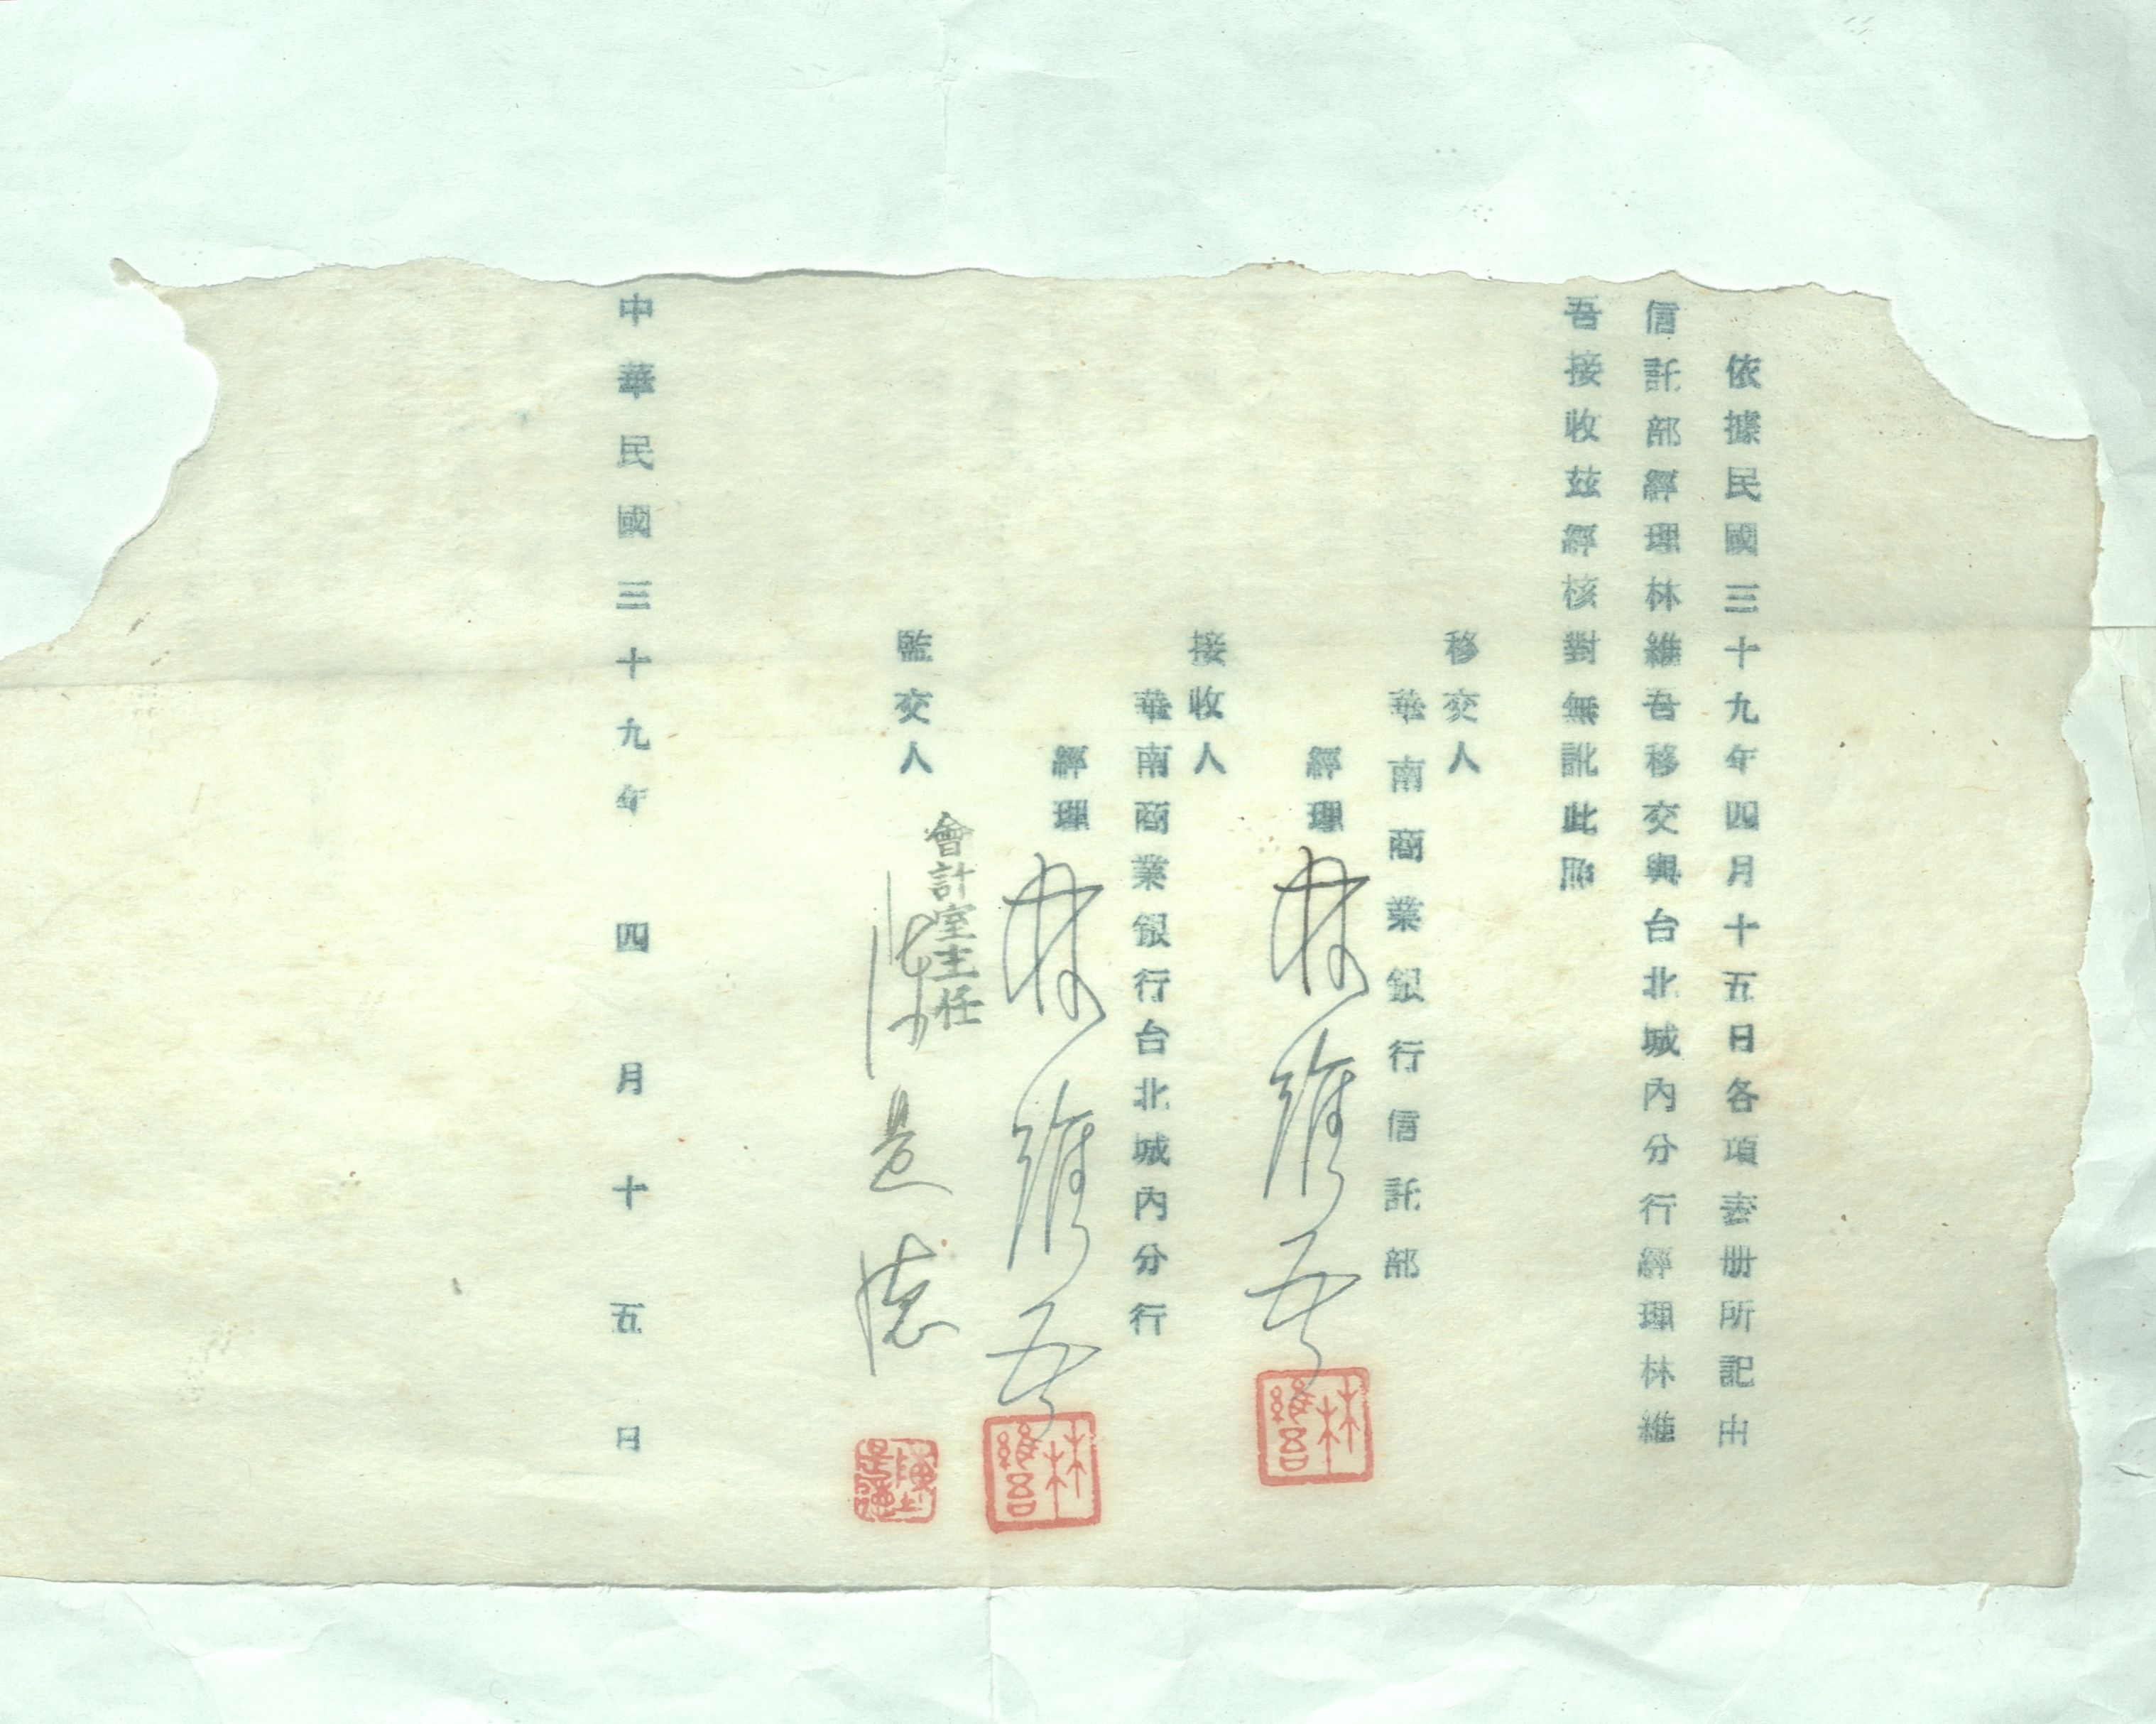 依據民國三十九年四月十五日各項表册所記由
信託部經理林維吾移交與台北城內分行經理林維
吾接收玆經核對無訛此照
移交人
華南商業銀行信託部
經理 林維吾
林維吾
接收人
華南商業銀行台北城內分行
經理 林維吾
林維吾
監交人
會計室主任
陳是德
中華民國三十九年四月十五日